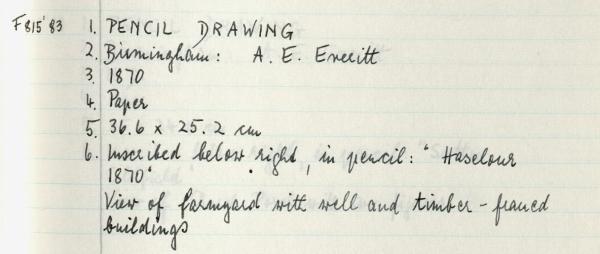 F815'83 1. PENCIL DRAWING
2. Birmingham: A. E. Everitt
3. 1870
4. Paper
5. 36.6 x 25.2 cm
6. Inscribed below right, in pencil: "Haselour
1870"
View of farmyard with well and timber-framed
buildings